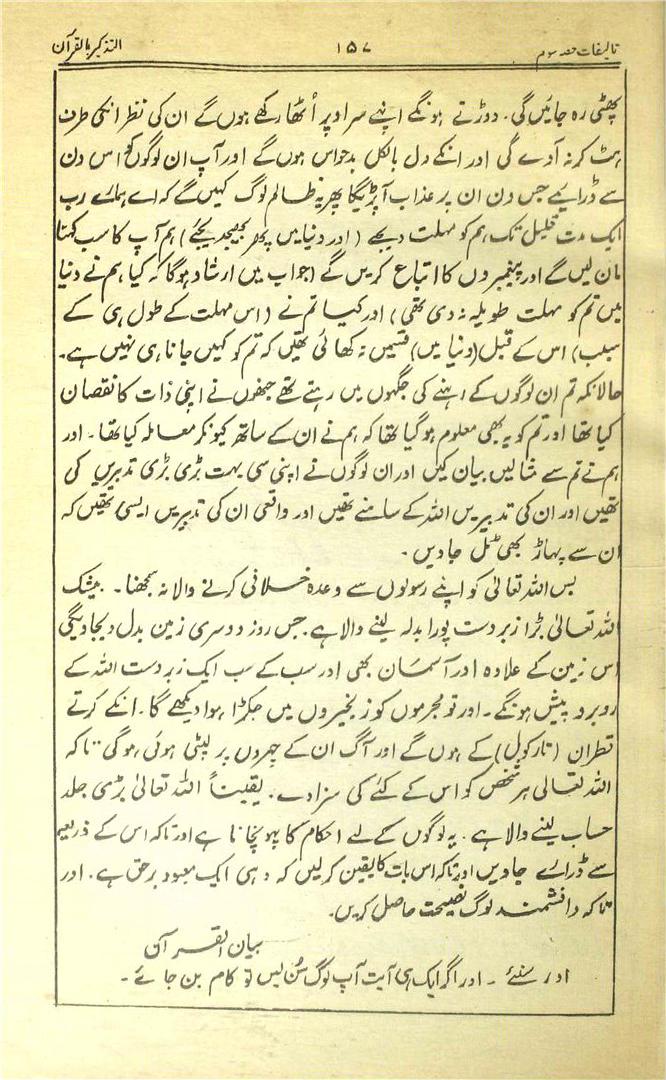 تالیفات حصہ سوم ۱۵۷ التذکیر بالقرآن
پھٹی رہ جائیں گی۔ دوڑتے ہونگے اپنے سر اوپر اُٹھا رکھے ہوں گے ان کی نظر انکی طرف
ہٹ کر نہ آوے گی اور انکے دل بالکل بدحواس ہوں گے اور آپ ان لوگوں کو اس دن
سے ڈرائیے جس دن ان پر عذاب آپڑیگا پھر یہ ظالم لوگ کہیں گے کہ اے ہمارے رب
ایک مدت قلیل تک ہم کو مہلت دیجے (اور دنیا میں پھر بھیجدیجئے) ہم آپ کا سب کہنا
مان لیں گے اور پیغمبروں کا اتباع کریں گے (جواب میں ارشاد ہوگا کہ کیا ہم نے دنیا
میں تم کو مہلت طویلہ نہ دی تھی) اور کیا تم نے (اس مہلت کے طول ہی کے
سبب) اس کے قبل (دنیا میں) قسمیں نہ کھائی تھیں کہ تم کو کہیں جانا ہی نہیں ہے۔
حالانکہ تم ان لوگوں کے رہنے کی جگہوں میں رہتے تھے جنھوں نے اپنی ذات کا نقصان
کیا تھا اور تم کو یہ بھی معلوم ہوگیا تھا کہ ہم نے ان کے ساتھ کیونکر معاملہ کیا تھا۔ اور
ہم نے تم سے مثالیں بیان کیں اور ان لوگوں نے اپنی سی بہت بڑی بڑی تدبیریں کی
تھیں اور ان کی تدبیریں اللہ کے سامنے تھیں اور واقعی ان کی تدبیریں ایسی تھیں کہ
ان سے پہاڑ بھی ٹل جاویں۔
بس اللہ تعالیٰ کو اپنے رسولوں سے وعدہ خلافی کرنے والا نہ سمجھنا۔ بیشک
اللہ تعالیٰ بڑا زبردست پورا بدلہ لینے والا ہے۔ جس روز دوسری زمین بدل دیجاویگی
اس زمین کے علاوہ اور آسمان بھی اور سب کے سب ایک زبردست اللہ کے
روبرو پیش ہونگے۔ اور تو مجرموں کو زنجیروں میں جکڑا ہوا دیکھے گا۔ انکے کرتے
قطران (تارکول) کے ہوں گے اور آگ ان کے چہروں پر لپٹی ہوئی ہوگی تاکہ
اللہ تعالیٰ ہر شخص کو اس کے کئے کی سزا دے۔ یقیناً اللہ تعالیٰ بڑی جلد
حساب لینے والا ہے۔ یہ لوگوں کے لیے احکام کا پہونچانا ہے اور تاکہ اس کے ذریعہ
سے ڈرائے جاویں اور تاکہ اس بات کا یقین کرلیں کہ وہی ایک معبود برحق ہے۔ اور
تاکہ دانشمند لوگ نصیحت حاصل کریں۔
بیان القرآن
اور سنئے ۔ اور اگر ایک ہی آیت آپ لوگ سُن لیں تو کام بن جائے ۔